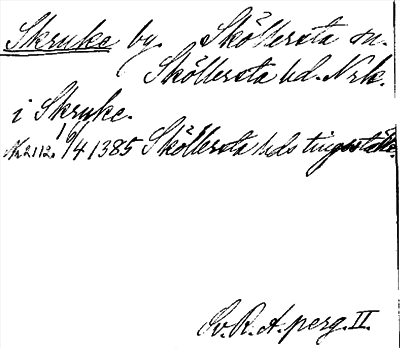 Skruke by. Sköllersta sn.
Sköllersta hd. Nrk.
i Skruke.
Nr 2112. 10/4 1385 Sköllersta hds tingställe.
Sv. R. A. perg. II.